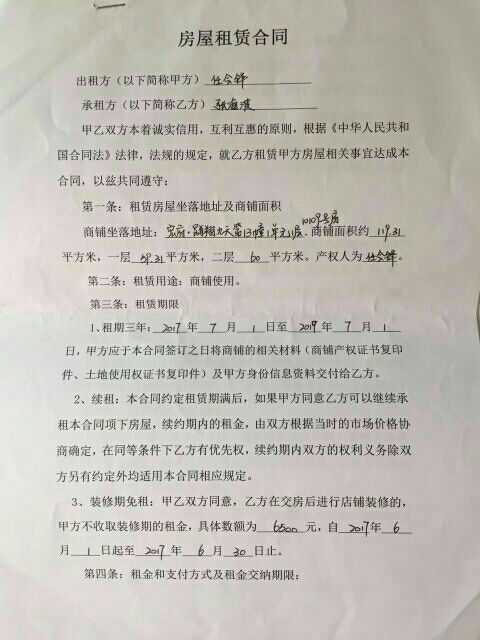 房屋租赁合同
出租方（以下简称甲方）
承租方（以下简称乙方）
甲乙双方本着诚实信用，互利互惠的原则，根据《中华人民共和
国合同法》法律，法规的规定，就乙方租赁甲方房屋相关事宜达成本
合同，以兹共同遵守：
第一条：租赁房屋坐落地址及商铺面积
10109号房
商铺坐落地址：九天第13幢1单元1层，商铺面积约 119.31
平方米，一层 59.31 平方米，二层 60 平方米。产权人为。
第二条：租赁用途：商铺使用。
第三条：租赁期限
1、租期三年：2017 年 7 月 1 日至 2019 年 7 月 1
日，甲方应于本合同签订之日将商铺的相关材料（商铺产权证书复印
件、土地使用权证书复印件）及甲方身份信息资料交付给乙方。
2、续租：本合同约定租赁期满后，如果甲方同意乙方可以继续承
租本合同项下房屋，续约期内的租金，由双方根据当时的市场价格协
商确定，在同等条件下乙方有优先权，续约期内双方的权利义务除双
方另有约定外均适用本合同相应规定。
3、装修期免租：甲乙双方同意，乙方在交房后进行店铺装修的，
甲方不收取装修期的租金，具体数额为 6500 元，自 2017年 6
月 1 日起至 2017 年 6 月 30 日止。
第四条：租金和支付方式及租金交纳期限：